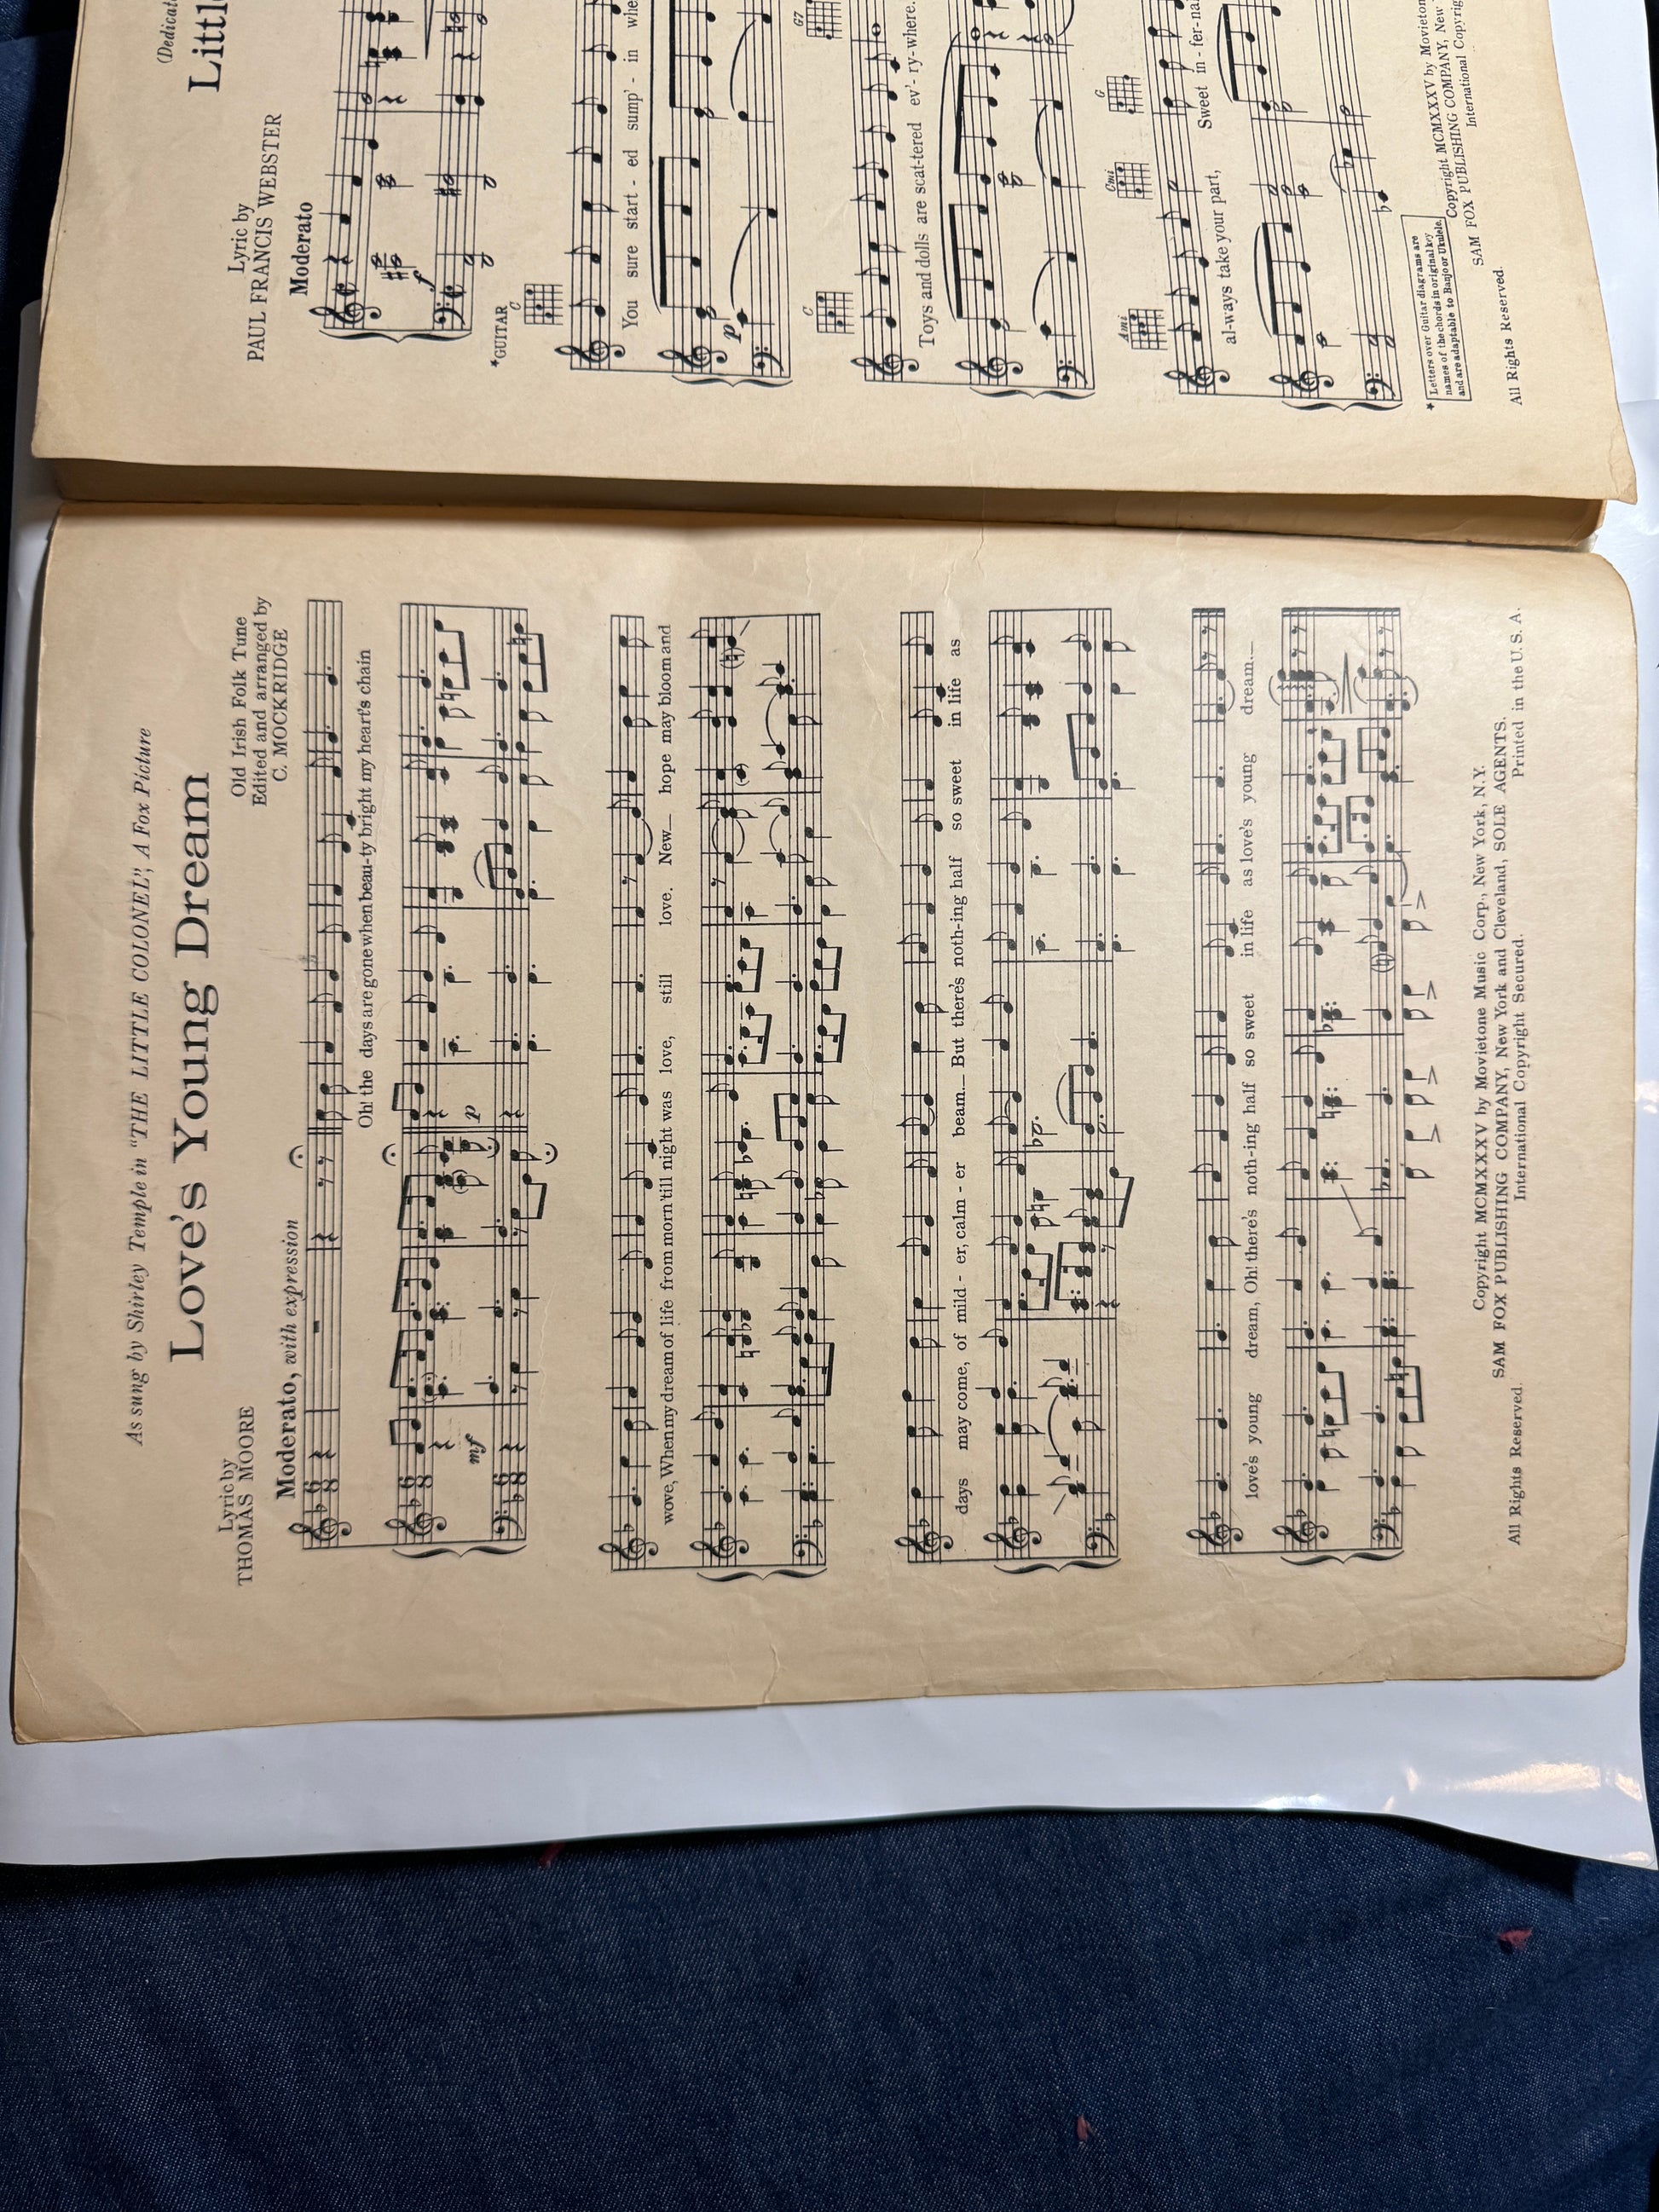 As sung by Shirley Temple in "THE LITTLE COLONEL", A Fox Picture
Love's Young Dream
Lyric by
THOMAS MOORE
Old Irish Folk Tune
Edited and arranged by
C. MOCKRIDGE
Moderato, with expression
Oh! the days are gone when beau-ty bright my heart's chain
mf
p
wove, When my dream of life from morn 'till night was love, still love. New hope may bloom and
days may come, of mild - er, calm - er beam. But there's noth-ing half so sweet in life as
love's young dream, Oh! there's noth-ing half so sweet in life as love's young dream.
Copyright MCMXXXV by Movietone Music Corp., New York, N.Y.
SAM FOX PUBLISHING COMPANY, New York and Cleveland, SOLE AGENTS.
All Rights Reserved.
International Copyright Secured.
Printed in the U. S. A.
Lyric by
PAUL FRANCIS WEBSTER
Moderato
f
*GUITAR
C
You sure start - ed sump' - in
p
C
G7
Toys and dolls are scat-tered ev'-ry-where.
Ami
Cmi
G
al-ways take your part, Sweet in - fer-na
* Letters over Guitar diagrams are
names of the chords in original key
and are adaptable to Banjo or Ukulele.
Copyright MCMXXXV by Movieton
SAM FOX PUBLISHING COMPANY, New
International Copyrig
All Rights Reserved.